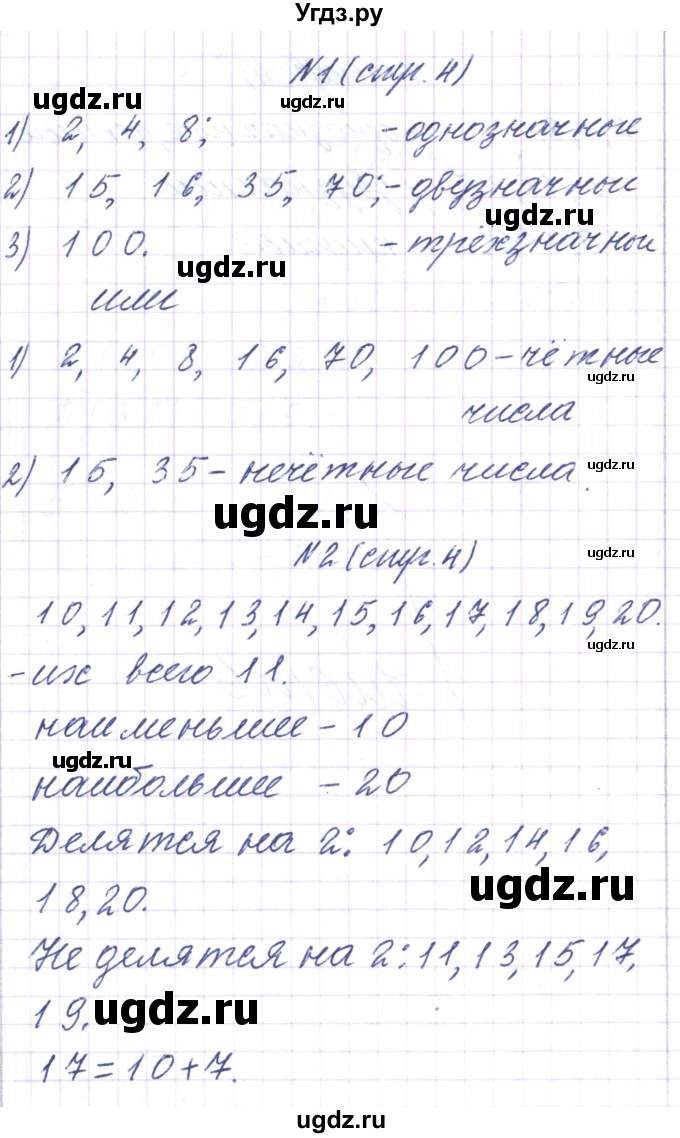 Угдз.ру
N1 (стр. 4)
ugdz.ru
1) 2, 4, 8; - однозначные
2) 15, 16, 35, 70; - двузначные
ugdz.ru
3) 100. - трёхзначные
ugdz.ru
или
1) 2, 4, 8, 16, 70, 100 - чётные
ugdz.ru
числа
2) 15, 35 - нечётные числа.
ugdz.ru
ugdz.ru
N2 (стр. 4)
ugdz.ru
10, 11, 12, 13, 14, 15, 16, 17, 18, 19, 20.
ugdz.ru
- их всего 11.
наименьшее - 10
ugdz.ru
наибольшее - 20
Делятся на 2: 10, 12, 14, 16,
ugdz.ru
18, 20.
Не делятся на 2: 11, 13, 15, 17,
19.
ugdz.ru
17 = 10 + 7.
ugdz.ru